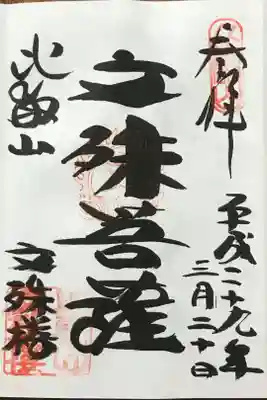 奉拝
平成二十九年
三月二十日
文殊菩薩
比叡山
文殊楼